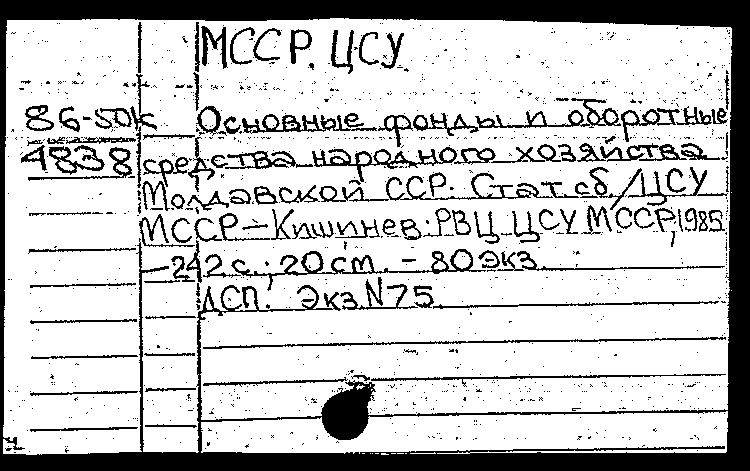 МССР. ЦСУ
86-50к Основные фонды и оборотные
4838 средства народного хозяйства
Молдавской ССР. Стат. сб/ЦСУ
МССР-Кишинев: РВЦ ЦСУ МССР, 1985
-242 с.; 20 см. - 80 экз.
ДСП. Экз. N 75